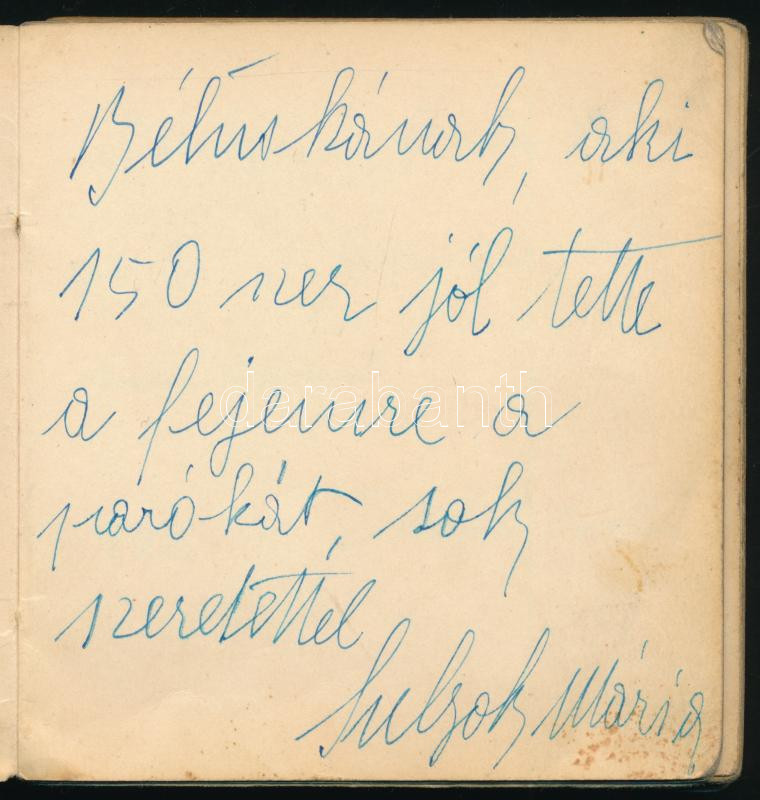 Béluskának, aki
150 szer jól tette
a fejemre a
parókát, sok
szeretettel
Sulyok Mária
darabanth